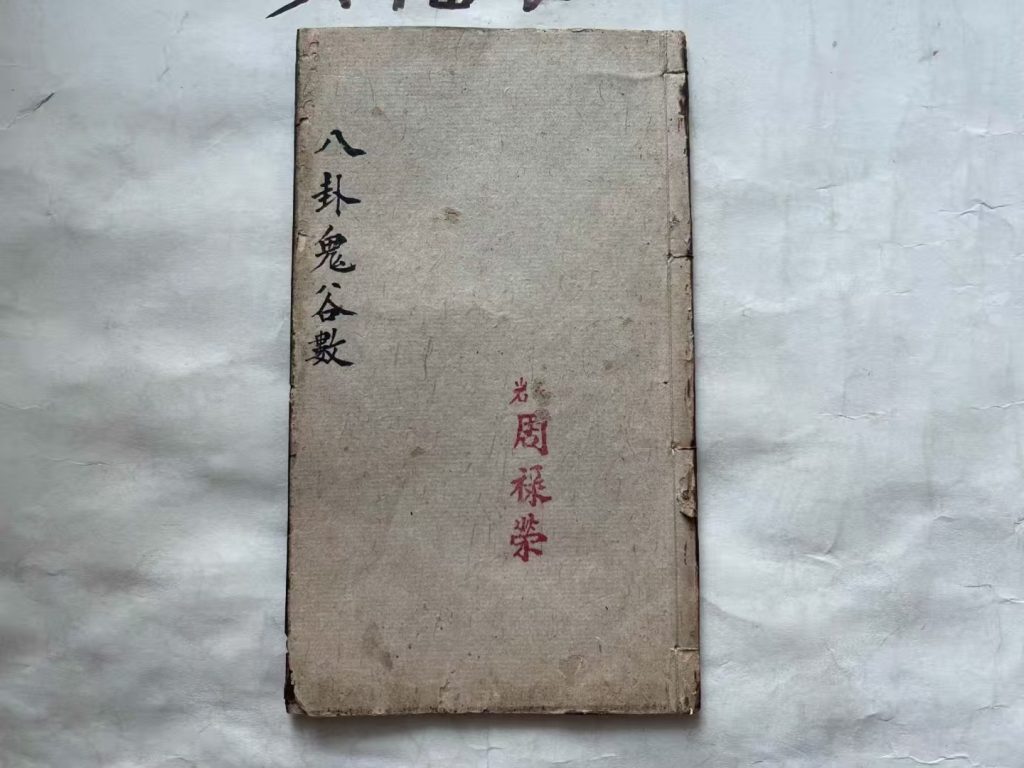 八卦鬼谷數
岩
周禄榮